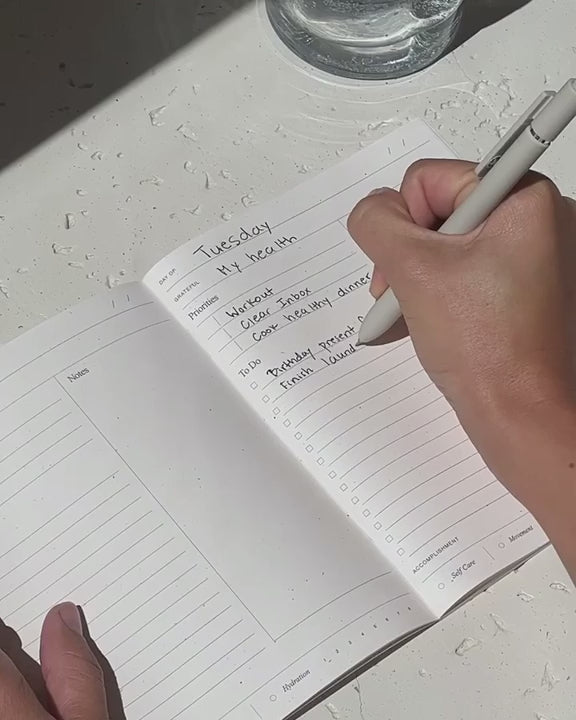 / /
Notes
Hydration
1 2 3 4 5 6 7 8
/ /
DAY OF Tuesday
GRATEFUL My health
Priorities
Workout
Clear Inbox
Cook healthy dinner
To Do
Birthday present
Finish laund
ACCOMPLISHMENT
Self Care
Movement